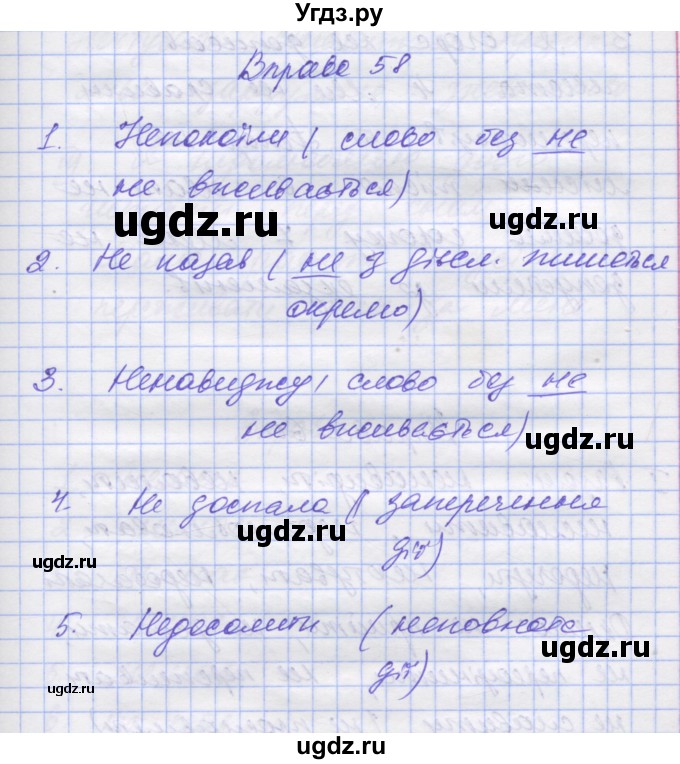 Угдз.ру
Вправа 58
1. Непокоїли (слово без не
не вживається)
ugdz.ru
ugdz.ru
2. Не казав (не з дієсл. пишеться
окремо)
ugdz.ru
ugdz.ru
3. Ненавиджу (слово без не
не вживається)
ugdz.ru
ugdz.ru
4. Не доспала (заперечення
дії)
ugdz.ru
ugdz.ru
5. Недосолити (неповнота
дії)
ugdz.ru
ugdz.ru
ugdz.ru